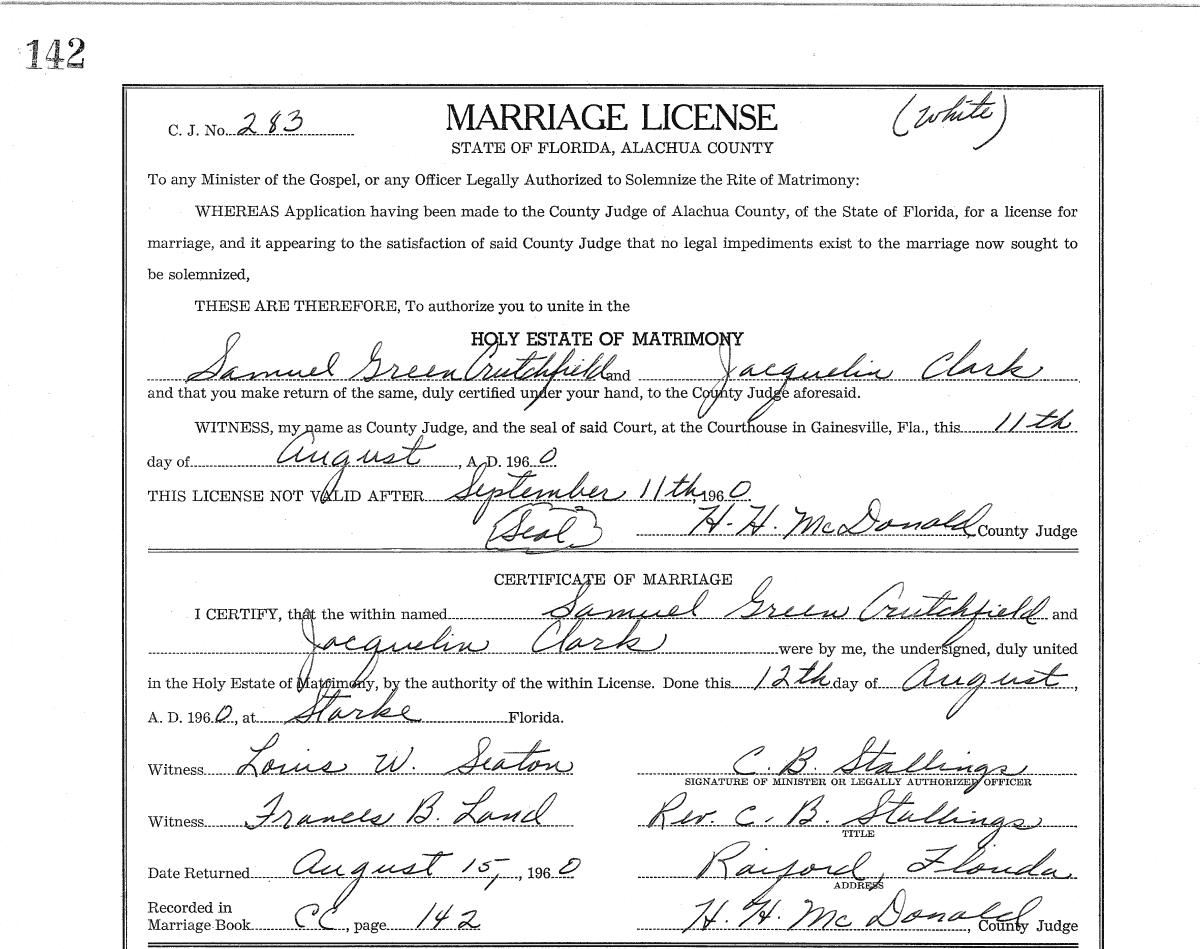 142
C. J. No. 283
MARRIAGE LICENSE
(White)
STATE OF FLORIDA, ALACHUA COUNTY
To any Minister of the Gospel, or any Officer Legally Authorized to Solemnize the Rite of Matrimony:
WHEREAS Application having been made to the County Judge of Alachua County, of the State of Florida, for a license for
marriage, and it appearing to the satisfaction of said County Judge that no legal impediments exist to the marriage now sought to
be solemnized,
THESE ARE THEREFORE, To authorize you to unite in the
HOLY ESTATE OF MATRIMONY
Samuel Green Crutchfield and Jacquelin Clark
and that you make return of the same, duly certified under your hand, to the County Judge aforesaid.
WITNESS, my name as County Judge, and the seal of said Court, at the Courthouse in Gainesville, Fla., this 11th
day of August, A. D. 1960.
THIS LICENSE NOT VALID AFTER September 11th, 1960.
(Seal) H. H. McDonald County Judge
CERTIFICATE OF MARRIAGE
I CERTIFY, that the within named Samuel Green Crutchfield and
Jacquelin Clark were by me, the undersigned, duly united
in the Holy Estate of Matrimony, by the authority of the within License. Done this 12th day of August,
A. D. 1960, at Starke Florida.
Witness Louis W. Seaton C. B. Stallings
SIGNATURE OF MINISTER OR LEGALLY AUTHORIZED OFFICER
Witness Frances B. Land Rev. C. B. Stallings
TITLE
Date Returned August 15, , 1960 Raiford, Florida
ADDRESS
Recorded in
Marriage Book CC, page 142 H. H. McDonald, County Judge